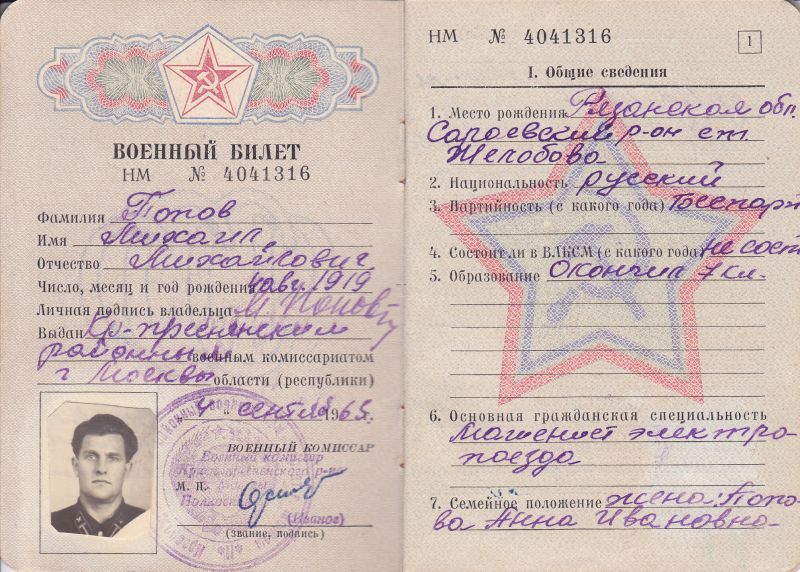 ВОЕННЫЙ БИЛЕТ
НМ № 4041316
Фамилия Попов
Имя Михаил
Отчество Михайлович
Число, месяц и год рождения 1 авг. 1919
Личная подпись владельца М. Попов
Выдан Кр-пресненским
районным военным комиссариатом
г Москвы области (республики)
сентября 1965 г.
ВОЕННЫЙ КОМИССАР
Военный комиссар
Краснопресненского р-на
М. П.
(Иванов)
(звание, подпись)
НМ № 4041316
1
I. Общие сведения
1. Место рождения Рязанская обл.
Сараевский р-он ст.
Желобово
2. Национальность русский
3. Партийность (с какого года) Беспарт
4. Состоит ли в ВЛКСМ (с какого года) не сост
5. Образование Окончил 7 кл.
6. Основная гражданская специальность
Машинист электро
поезда
7. Семейное положение жена: Попо
ва Анна Ивановна